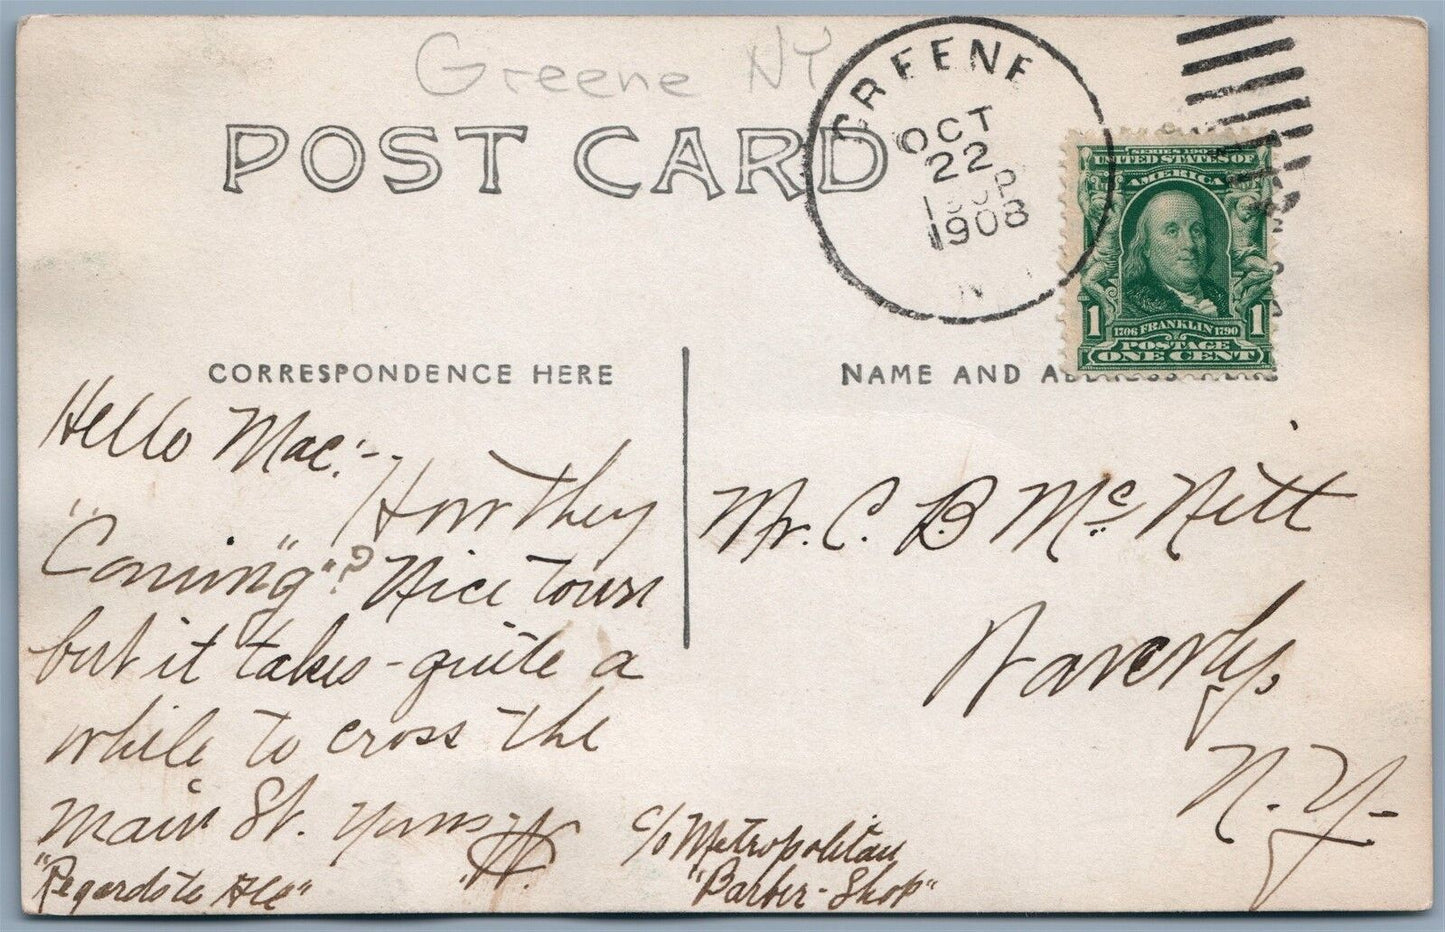 Greene NY
POST CARD
GREENE
OCT
22
1908
N
SERIES 1902
UNITED STATES OF
AMERICA
1 1706 FRANKLIN 1790 1
POSTAGE
ONE CENT
CORRESPONDENCE HERE
NAME AND ADDRESS HERE
Hello Mac:-
How They
"Coming"? Nice town
but it takes - quite a
while to cross the
main St. Yours
"Regards to All"
Mr. C. B. McNitt
Waverly,
N.Y.
c/o Metropolitan
"Barber-Shop"